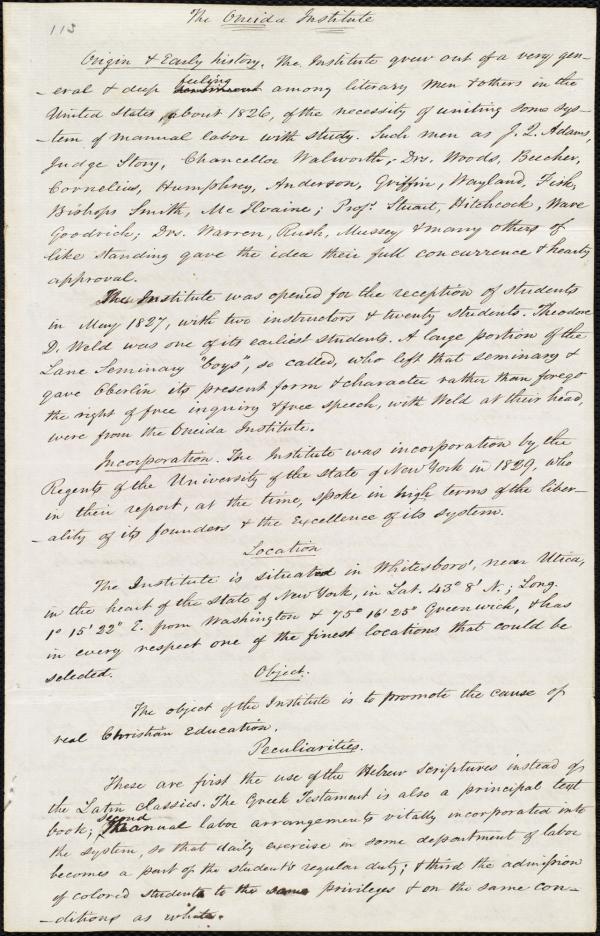 113
The Oneida Institute
Origin & Early history. The Institute grew out of a very gen-
-eral & deep feeling among literary men & others in the
United States, about 1826, of the necessity of uniting some sys-
tem of manual labor with study. Such men as J. Q. Adams,
Judge Story, Chancellor Walworth, Drs. Woods, Beecher,
Cornelius, Humphrey, Anderson, Griffin, Wayland, Fisk,
Bishops Smith, McIlvaine; Profs. Stuart, Hitchcock, Ware
Goodrich; Drs. Warren, Rush, Mussey & many others of
like standing gave the idea their full concurrence & hearty
approval.
The Institute was opened for the reception of students
in May 1827, with two instructors & twenty students. Theodore
D. Weld was one of its earliest students. A large portion of the
Lane Seminary "boys", so called, who left that seminary &
gave Oberlin its present form & character rather than forego
the right of free inquiry & free speech, with Weld at their head,
were from the Oneida Institute.
Incorporation. The Institute was incorporation by the
Regents of the University of the State of New York in 1829, who
in their report, at the time, spoke in high terms of the liber-
-ality of its founders & the Excellence of its system.
Location
The Institute is situated in Whitesboro', near Utica,
in the heart of the State of New York, in Lat. 43° 8' N.; Long.
1° 15' 22" E. from Washington & 75° 16' 25" Greenwich, & has
in every respect one of the finest locations that could be
selected.
Object.
The object of the Institute is to promote the cause of
real Christian Education.
Peculiarities.
These are first the use of the Hebrew Scriptures instead of
the Latin Classics. The Greek Testament is also a principal text
book; second manual labor arrangements vitally incorporated into
the system, so that daily exercise in some department of labor
becomes a part of the student's regular duty; & third the admission
of colored students to the same privileges & on the same con-
-ditions as white.